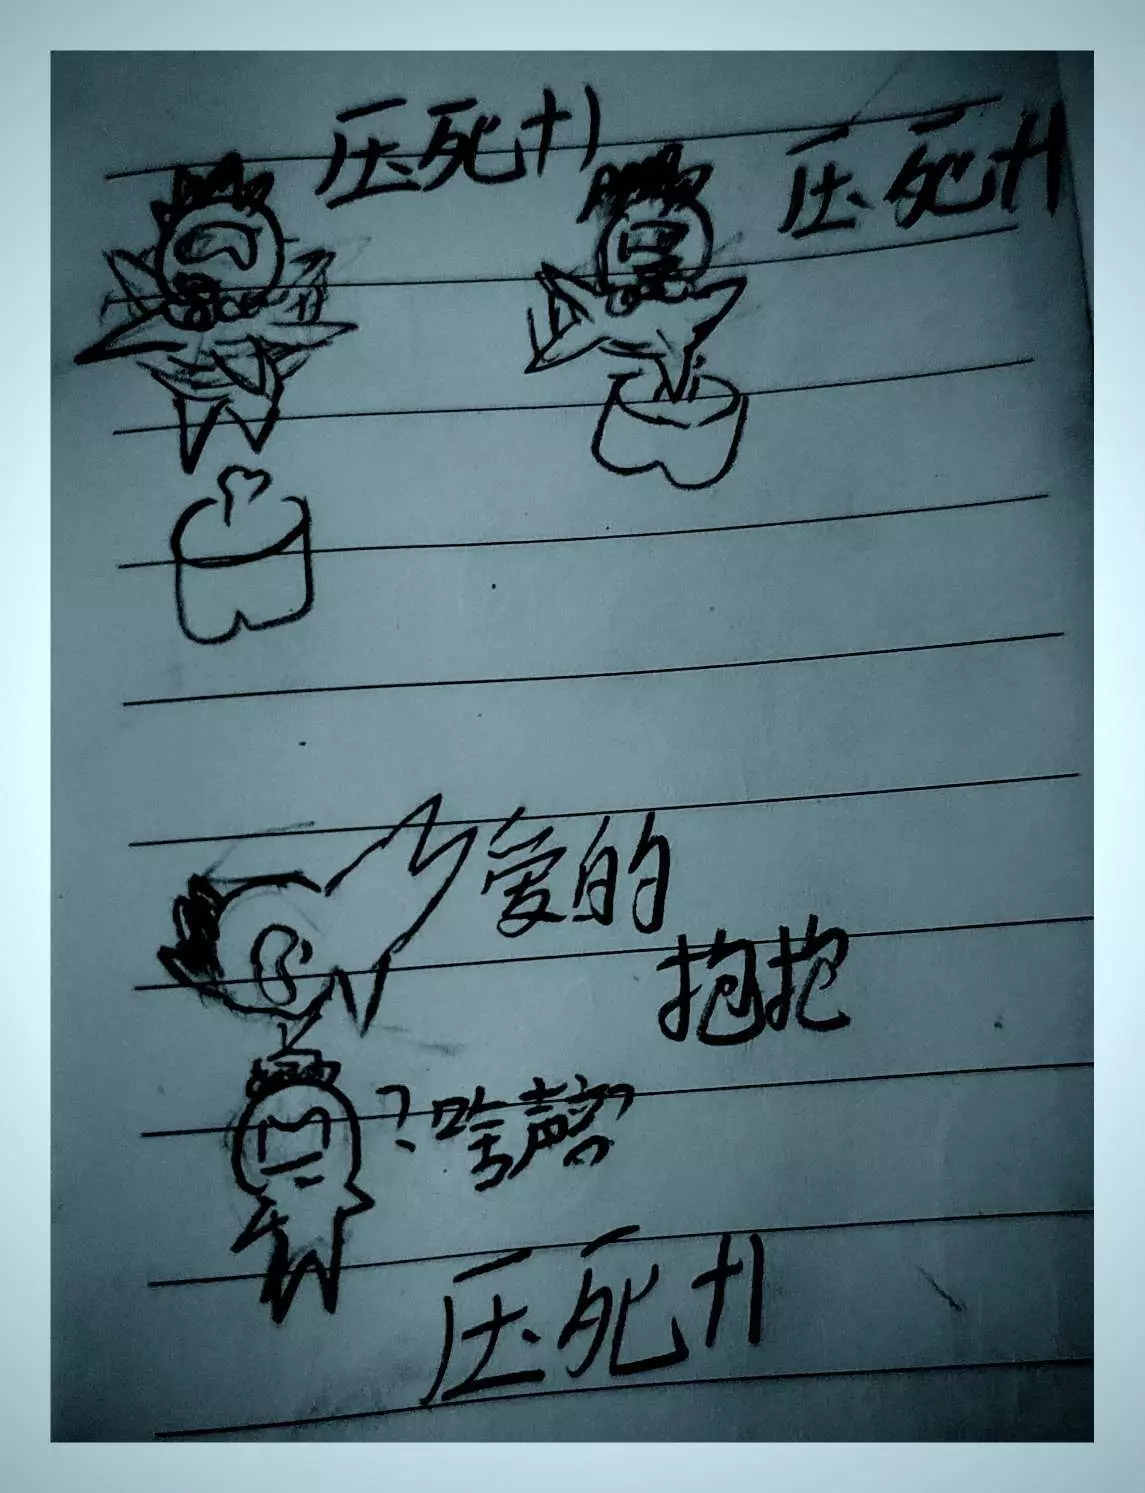 压死+1
压死+1
爱的
抱抱
?啥声音?
压死+1